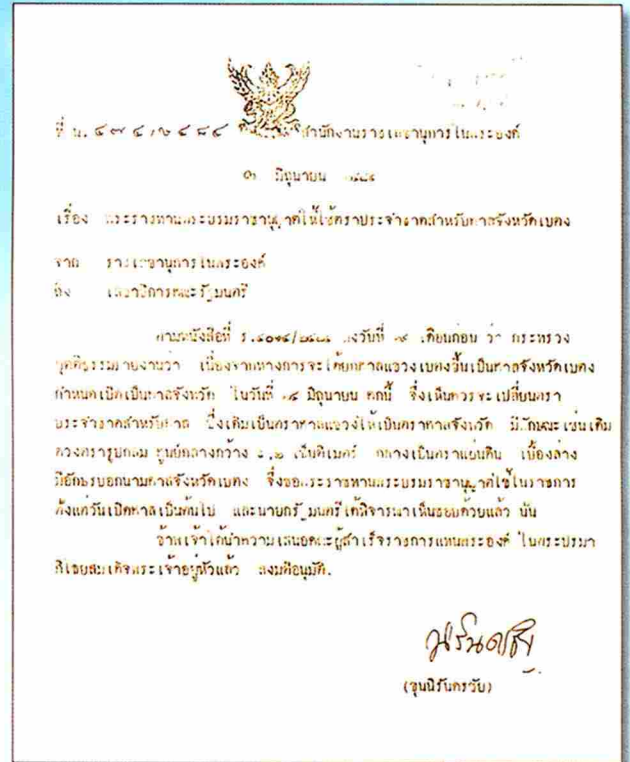 ที่ น. ๔๗๔/๒๔๘๔ สำนักงานราชเลขานุการในพระองค์
มิถุนายน
เรื่อง พระราชทานพระบรมราชานุญาตให้ใช้ตราประจำชาดสำหรับศาลจังหวัดเบตง
จาก ราชเลขานุการในพระองค์
ถึง เลขาธิการคณะรัฐมนตรี
ตามหนังสือที่ ลงวันที่ เดือนก่อน ว่า กระทรวง
ยุตติธรรมรายงานว่า เนื่องจากทางการจะได้ยกศาลแขวงเบตงขึ้นเป็นศาลจังหวัดเบตง
กำหนดเปิดเป็นศาลจังหวัด ในวันที่ มิถุนายน ศกนี้ จึงเห็นควรจะเปลี่ยนตรา
ประจำชาดสำหรับศาล ซึ่งเดิมเป็นตราศาลแขวงให้เป็นตราศาลจังหวัด มีลักษณะเช่นเดิม
ดวงตรารูปกลม ศูนย์กลางกว้าง เซ็นติเมตร์ กลางเป็นตราแผ่นดิน เบื้องล่าง
มีอักษรบอกนามศาลจังหวัดเบตง จึงขอพระราชทานพระบรมราชานุญาตใช้ในราชการ
ตั้งแต่วันเปิดศาลเป็นต้นไป และนายกรัฐมนตรีได้พิจารณาเห็นชอบด้วยแล้ว นั้น
ข้าพเจ้าได้นำความเสนอคณะผู้สำเร็จราชการแทนพระองค์ ในพระปรมา
ภิไธยสมเด็จพระเจ้าอยู่หัวแล้ว ลงมติอนุมัติ.
(ขุนนิรันดรชัย)